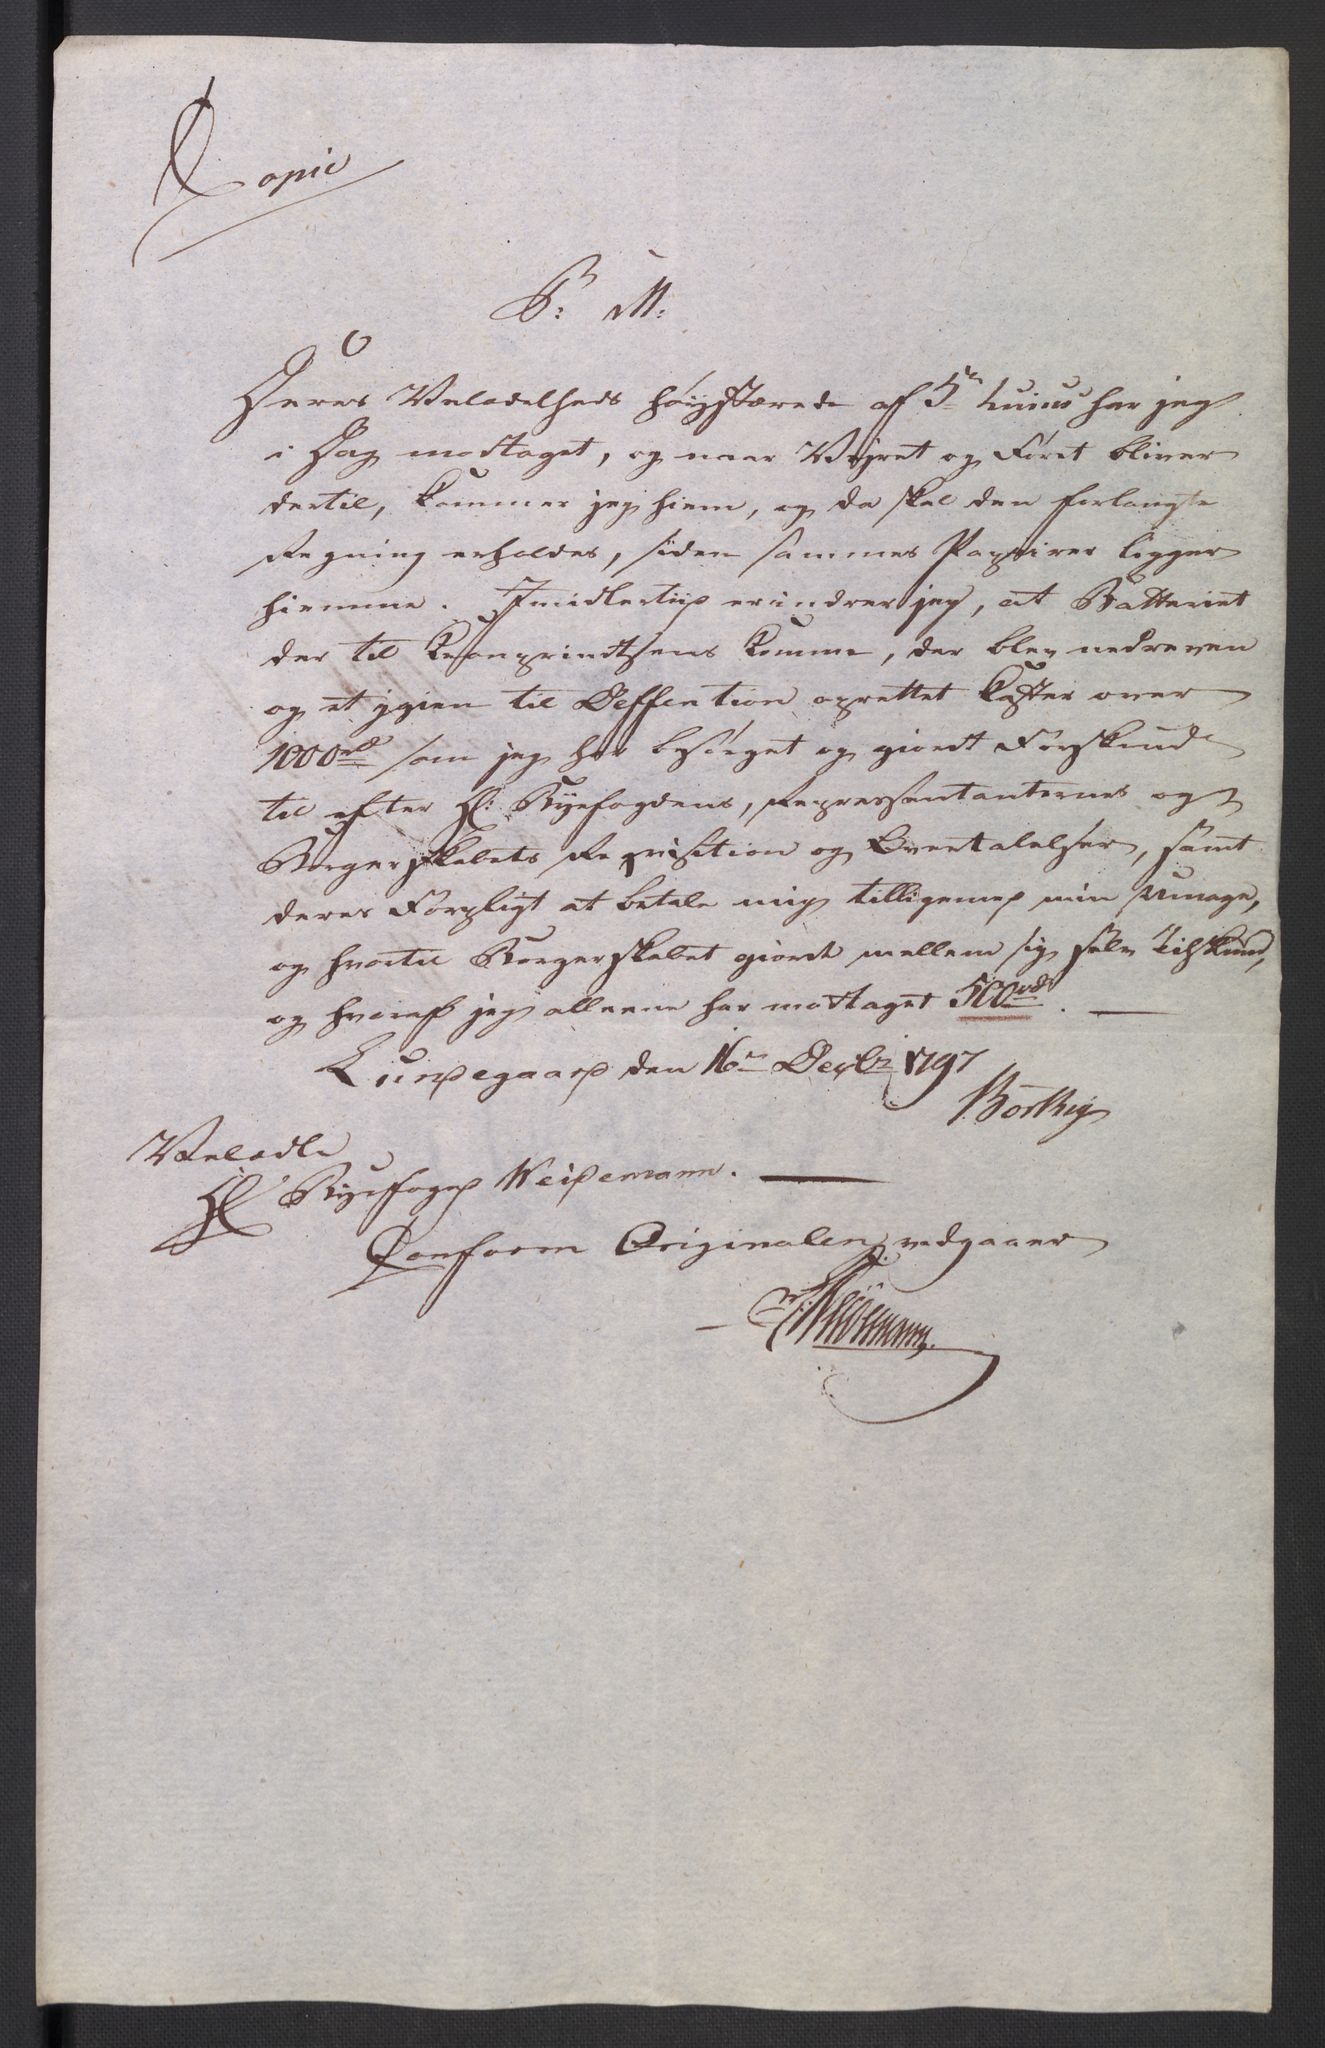 Copie
P: M:
Deres Velædelheds høystærede af 5te huius har jeg
i Dag modtaget, og naar Vejret og Føret bliver
dertil, kommer jeg hiem, og da skal den forlangte
Regning erholdes, siden sammes Papirer ligger
hiemme. Imidlertiid erindrer jeg, at Batteriet
der til Kronprindtsens komme, der blev nedreven
og et igien til Deffention oprettet koster over
1000rd som jeg har besørget og giordt Forskud
til efter Hr: Byefogdens, Repressentanternes og
Borgerskabets Reqvisition og Overtalelser, samt
deres Forpligt at betale mig tilligemed min Umage,
og hvortil Borgerskabet giorde mellem sig selv Tilskud,
og hvoraf jeg alleene har modtaget 500rd.
Lundegaard den 16de Decbr 1797
Velædle
Hr Byefoged Weidemann.
Conform Originalen, vedgaaer